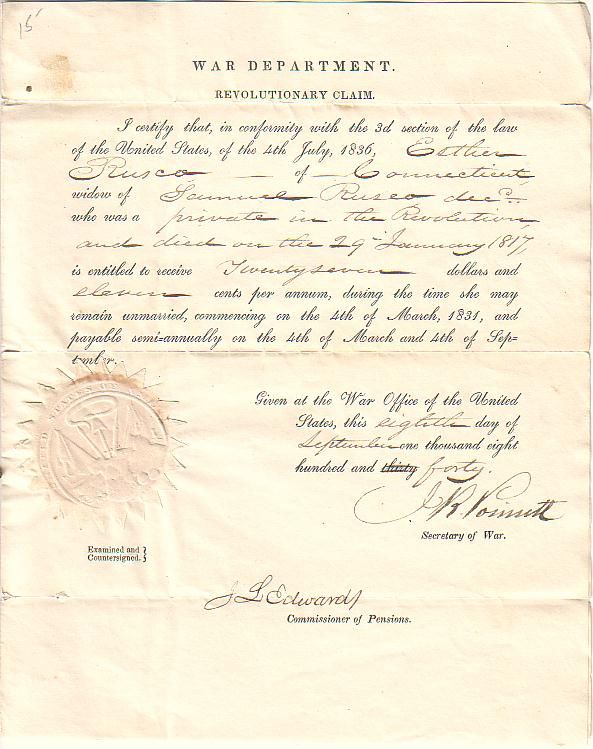 15
WAR DEPARTMENT.
REVOLUTIONARY CLAIM.
I certify that, in conformity with the 3d section of the law
of the United States, of the 4th July, 1836, Esther
Rusco of Connecticut,
widow of Samuel Rusco decd.
who was a private in the Revolution,
and died on the 29th January 1817,
is entitled to receive Twenty seven dollars and
eleven cents per annum, during the time she may
remain unmarried, commencing on the 4th of March, 1831, and
payable semi=annually on the 4th of March and 4th of Sep=
tember.
Given at the War Office of the United
States, this eighth day of
September one thousand eight
hundred and thirty forty.
J R Poinsett
Secretary of War.
Examined and
Countersigned.
J L Edwards
Commissioner of Pensions.